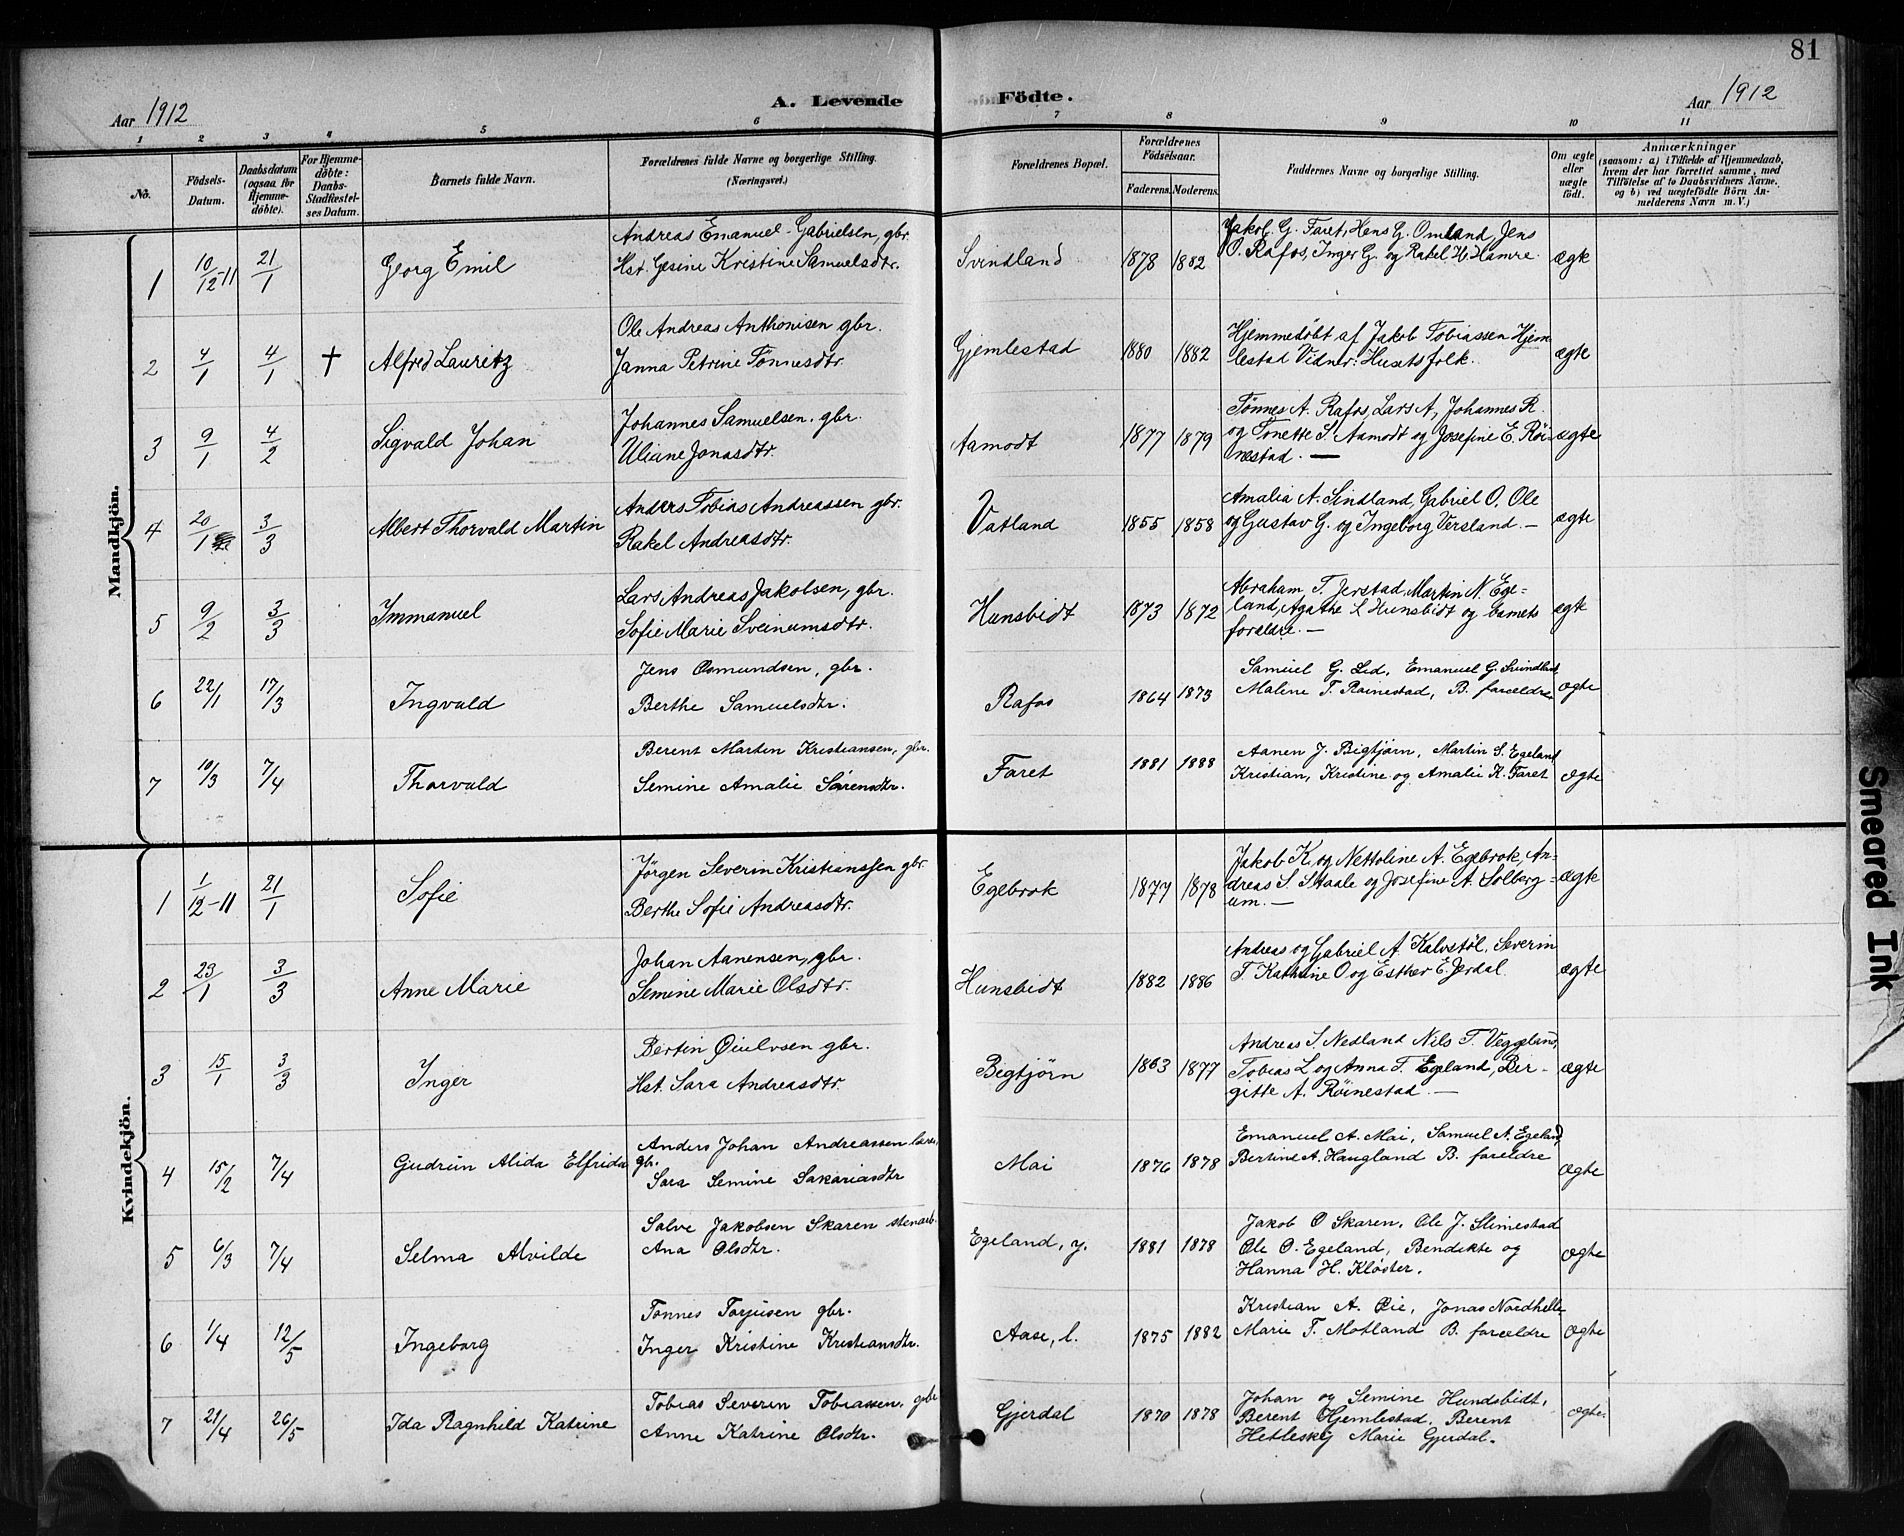 81
A. Levende Födte.
Aar 1912
Aar 1912
1 2 3 4 5 6 7 8 9 10 11
No.
Födsels-Datum.
Daabsdatum (ogsaa for Hjemme-döbte).
For Hjemme-döbte: Daabs-Stadfæstel-ses Datum.
Barnets fulde Navn.
Forældrenes fulde Navne og borgerlige Stilling. (Næringsvei.)
Forældrenes Bopæl.
Forældrenes Födselsaar.
Faderens. Moderens.
Faddernes Navne og borgerlige Stilling.
Om ægte eller uægte födt.
Anmærkninger
(saasom: a) i Tilfælde af Hjemmedaab,
hvem der har forrettet samme, med
Tilföielse af to Daabsvidners Navne.
og b) ved uægtefödte Börn An-
melderens Navn m. V.)
Mandkjön.
1 10/12-11 21/1 Georg Emil
Andreas Emanuel Gabrielsen, gbr.
Hst. Gesine Kristine Samuelsdtr.
Svindland 1878 1882
Jakob G. Faret, Hans G. Omland, Jens
O. Rafos, Inger G. og Rakel H. Hamre.
ægte
2 4/1 4/1 † Alfred Lauritz
Ole Andreas Anthonisen gbr.
Janna Petrine Tönnesdtr.
Gjemlestad 1880 1882
Hjemmedöbt af Jakob Tobiassen Hjem
lestad Vidner: Husetsfolk.
ægte
3 9/1 4/2 Sigvald Johan
Johannes Samuelsen, gbr.
Uliane Jonasdtr.
Aamodt 1877 1879
Tønnes A. Rafos, Lars A, Johannes R.
og Tonette S. Aamodt og Josefine E. Röi-
nestad. —
ægte
4 20/1 3/3 Albert Thorvald Martin
Anders Tobias Andreassen gbr.
Rakel Andreasdtr.
Vatland 1855 1858
Amalia A. Sindland, Gabriel O. Ole
og Gustav G. og Ingeborg Versland. —
ægte
5 9/2 3/3 Immanuel
Lars Andreas Jakobsen, gbr.
Sofie Marie Sveinumsdtr.
Hunsbidt 1873 1872
Abraham T. Jerstad, Martin N. Ege-
land, Agathe L Hunsbidt og barnets
forældre. —
ægte
6 22/1 17/3 Ingvald
Jens Osmundsen, gbr.
Berthe Samuelsdtr.
Rafos 1864 1873
Samuel G. Lid, Emanuel G. Svindland
Maline T. Röinestad, B. forældre
ægte
7 10/3 7/4 Thorvald
Berent Martin Kristiansen, gbr.
Semine Amalie Sörensdtr.
Faret 1881 1888
Aanen J. Bigtjörn, Martin S. Egeland
Kristian, Kristine og Amalie K. Faret
ægte
Kvindekjön.
1 1/12-11 21/1 Sofie
Jørgen Severin Kristianssen gbr.
Berthe Sofie Andreasdtr.
Egebrok 1877 1878
Jakob K. og Nettoline A. Egebrok, An=
dreas S. Staale og Josefine A. Solberg=
um. —
ægte
2 23/1 3/3 Anne Marie
Johan Aanensen, gbr.
Semine Marie Olsdtr.
Hunsbidt 1882 1886
Andreas og Gabriel A. Kalvstøl, Severin
T Kathrine O og Esther E. Jerdal.
ægte
3 15/1 3/3 Inger
Bertin Øiulvsen gbr.
Hst. Sara Andreasdtr.
Bigtjörn 1863 1877
Andreas S. Nedland Nils T. Veggeland,
Tobias L og Anna T. Egeland, Bir-
gitte A. Röinestad. —
ægte
4 15/2 7/4 Gudrun Alida Elfrida
Anders Johan Andreassen lærer,
gb.
Sara Semine Sakariasdtr
Moi 1876 1878
Emanuel A. Moi, Samuel A. Egeland,
Bertine A. Haugland B. forældre
ægte
5 6/3 7/4 Selma Alvilde
Salve Jakobsen Skaren stenarb.
Ana Olsdtr.
Egeland, y. 1881 1878
Jakob O Skaren, Ole J. Slimestad
Ole O. Egeland, Bendikte og
Hanna H. Kløster.
ægte
6 1/4 12/5 Ingeborg
Tønnes Torjusen gbr.
Inger Kristine Kristiansdtr.
Aase, l. 1875 1882
Kristian A. Øie, Jonas Nordhelle
Marie T. Motland B. forældre
ægte
7 21/4 26/5 Ida Ragnhild Katrine
Tobias Severin Tobiassen, gbr
Anne Katrine Olsdtr.
Gjerdal 1870 1878
Johan og Semine Hundsbidt,
Berent Hjemlestad, Berent
Hetleskej Marie Gjerdal.
ægte.
Smeared Ink